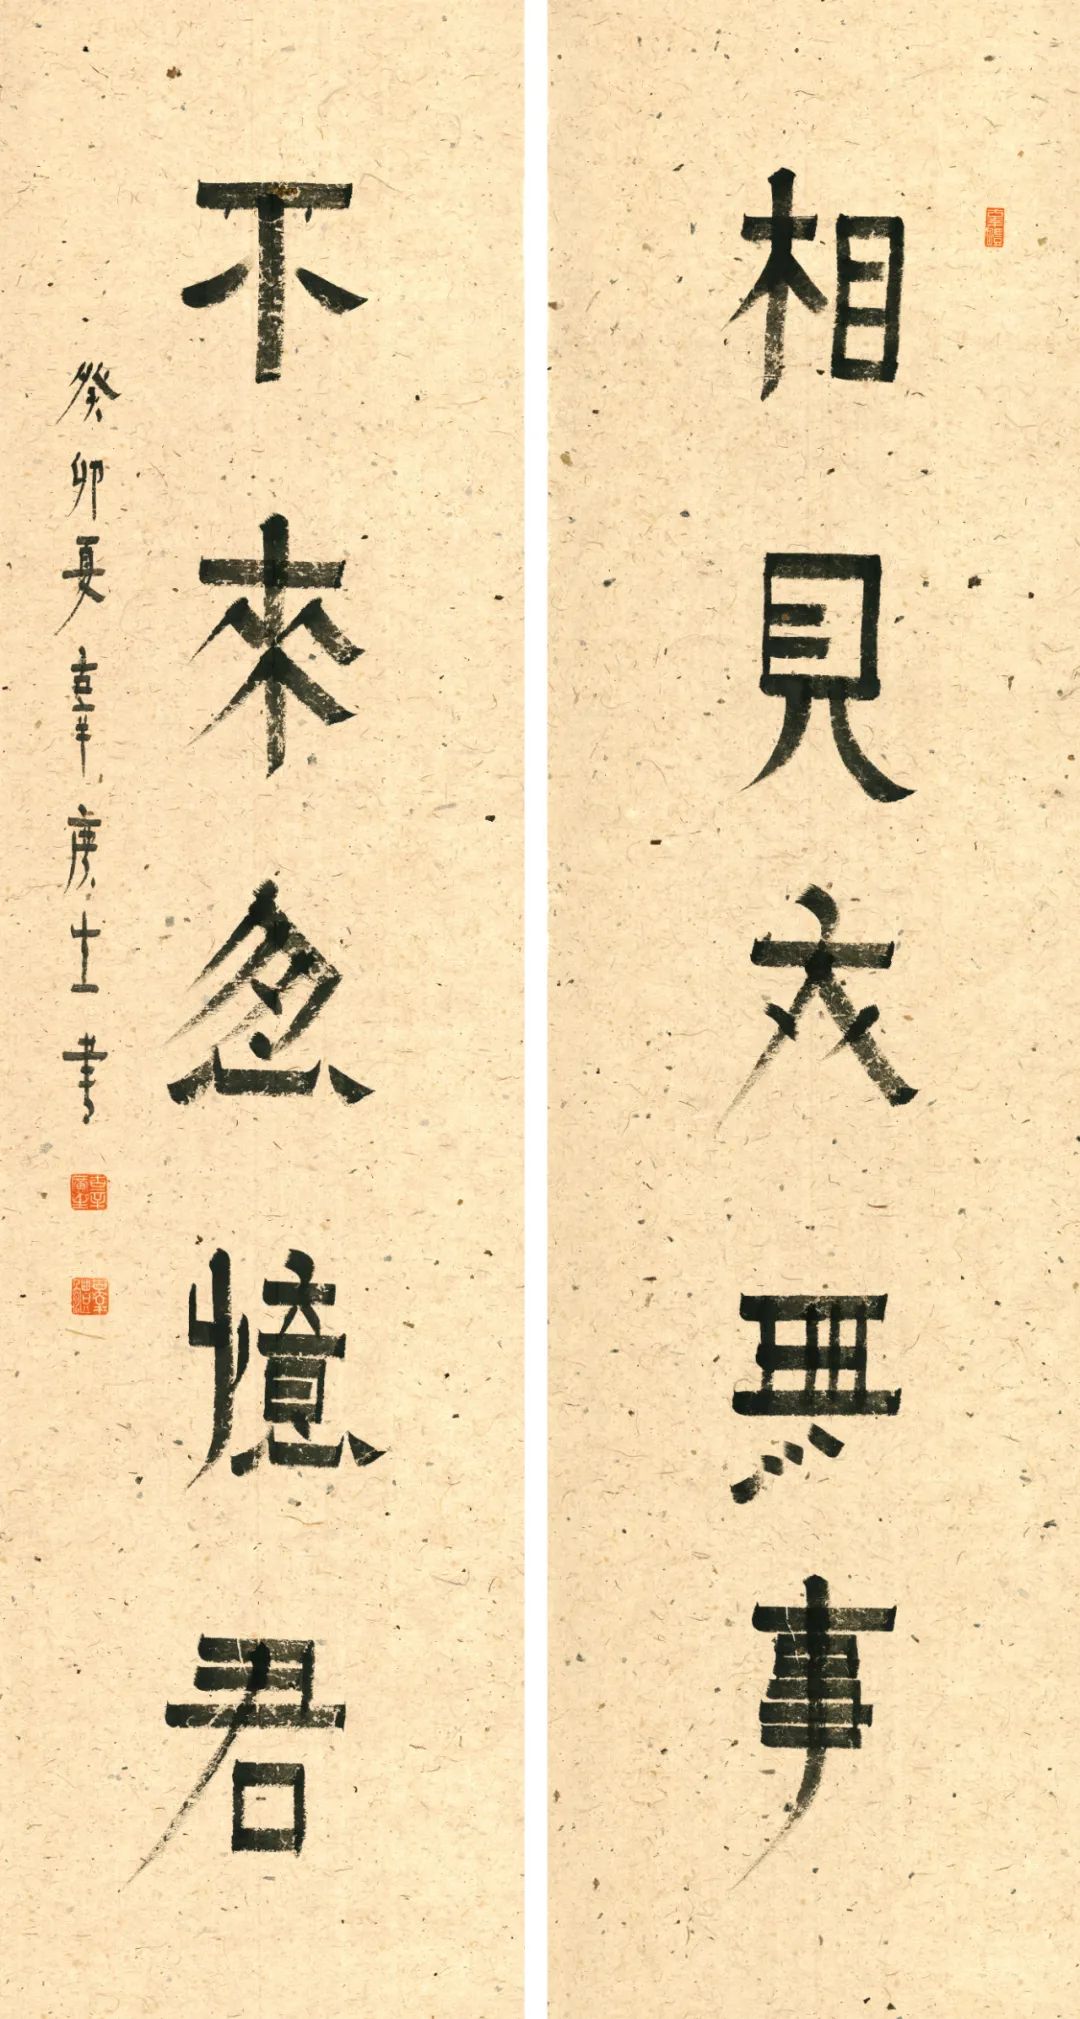 相見亦無事
不來忽憶君
癸卯夏士書